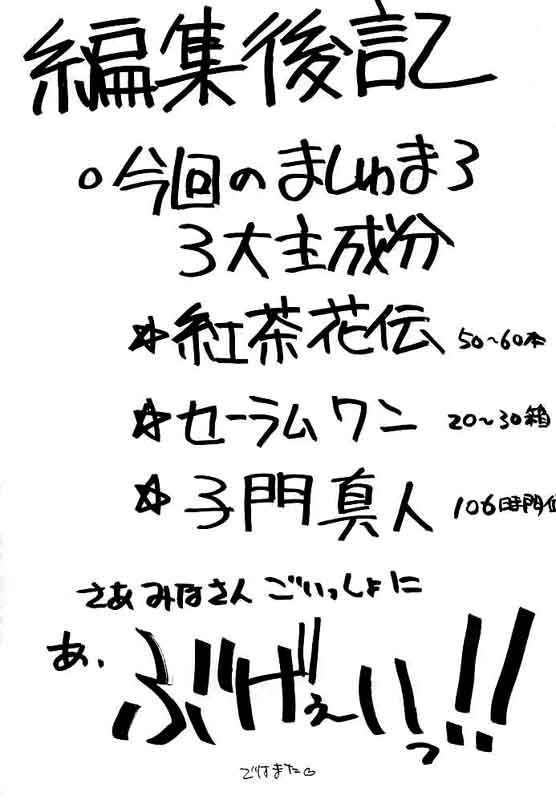 編集後記
○今回のましゅまろ
3大主成分
☆紅茶花伝 50〜60本
☆セーラムワン 20〜30箱
☆子門真人 106時間位
さあみなさんごいっしょに
あ、
ぶげぇいっ!!
ではまた